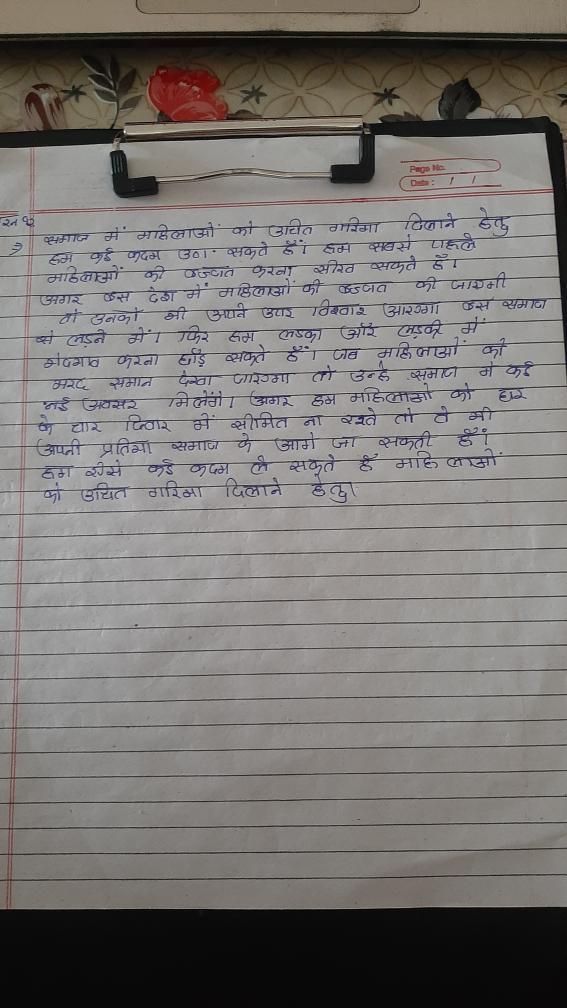 Page No.
Date: / /
प्रश्न १
→ समाज में महिलाओं को उचित गरिमा दिलाने हेतु
हम कई कदम उठा सकते हैं। हम सबसे पहले
महिलाओं की इज्जत करना सीख सकते हैं।
अगर इस देश में महिलाओं की इज्जत की जाएगी
तो उनको भी अपने उपर विश्वास आएगा इस समाज
से लड़ने में। फिर हम लडका और लड़की में
भेदभाव करना छोड़ सकते हैं। जब महिलाओं को
मरद समान देखा जाएगा तो उन्हे समाज मे कई
नई अवसर मिलेंगे। अगर हम महिलाओ को घर
के चार दिवार में सीमित ना रखे तो वे भी
अपनी प्रतिभा समाज के आगे ला सकती हैं।
हम ऐसे कई कदम ले सकते हैं महिलाओं
को उचित गरिमा दिलाने हेतु।